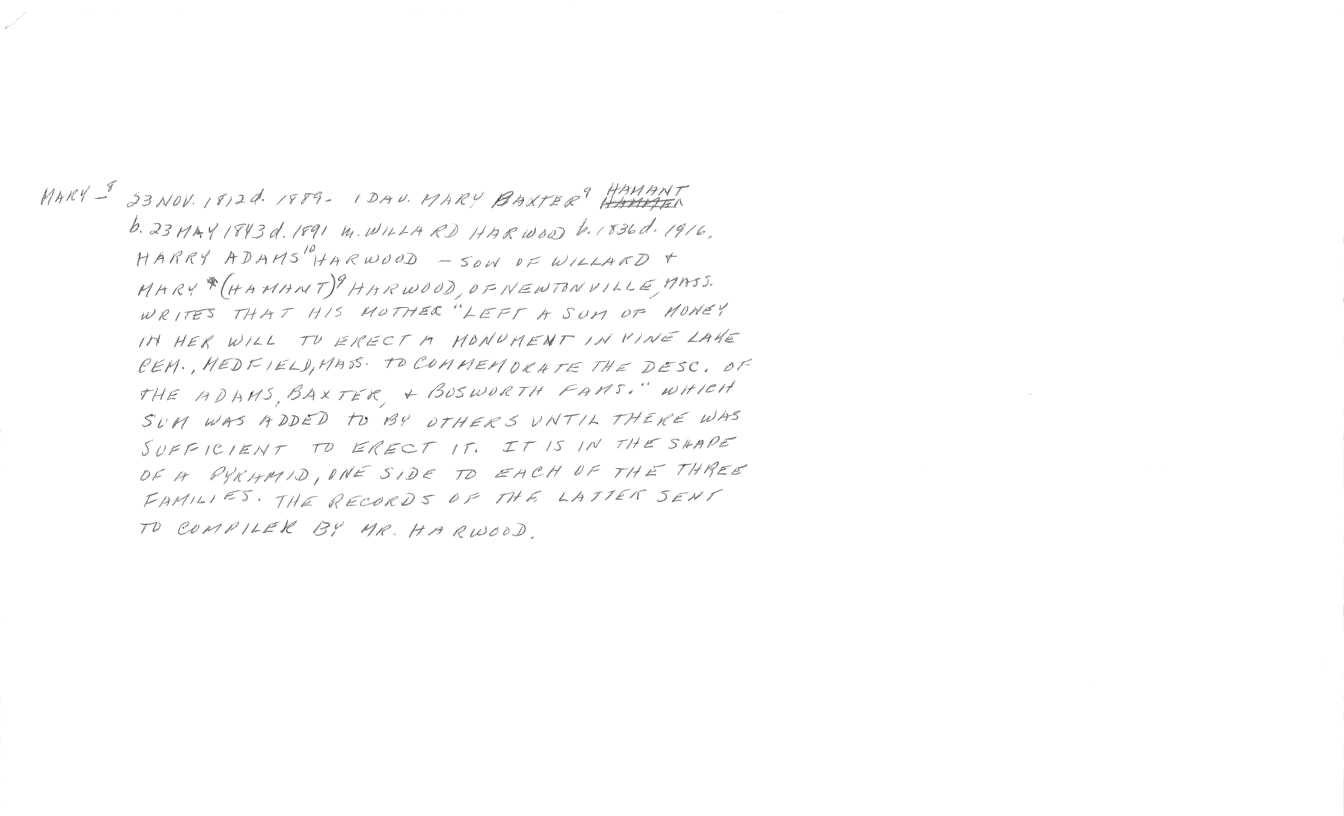 MARY - 8 23 NOV. 1812 d. 1889 - 1 DAU. MARY BAXTER 9 HAMANT
b. 23 MAY 1843 d. 1891 m. WILLARD HARWOOD b. 1836 d. 1916.
HARRY ADAMS 10 HARWOOD - SON OF WILLARD +
MARY * (HAMANT) 9 HARWOOD, OF NEWTONVILLE, MASS.
WRITES THAT HIS MOTHER "LEFT A SUM OF MONEY
IN HER WILL TO ERECT A MONUMENT IN VINE LAKE
CEM., MEDFIELD, MASS. TO COMMEMORATE THE DESC. OF
THE ADAMS, BAXTER, + BOSWORTH FAMS." WHICH
SUM WAS ADDED TO BY OTHERS UNTIL THERE WAS
SUFFICIENT TO ERECT IT. IT IS IN THE SHAPE
OF A PYRAMID, ONE SIDE TO EACH OF THE THREE
FAMILIES. THE RECORDS OF THE LATTER SENT
TO COMPILER BY MR. HARWOOD.